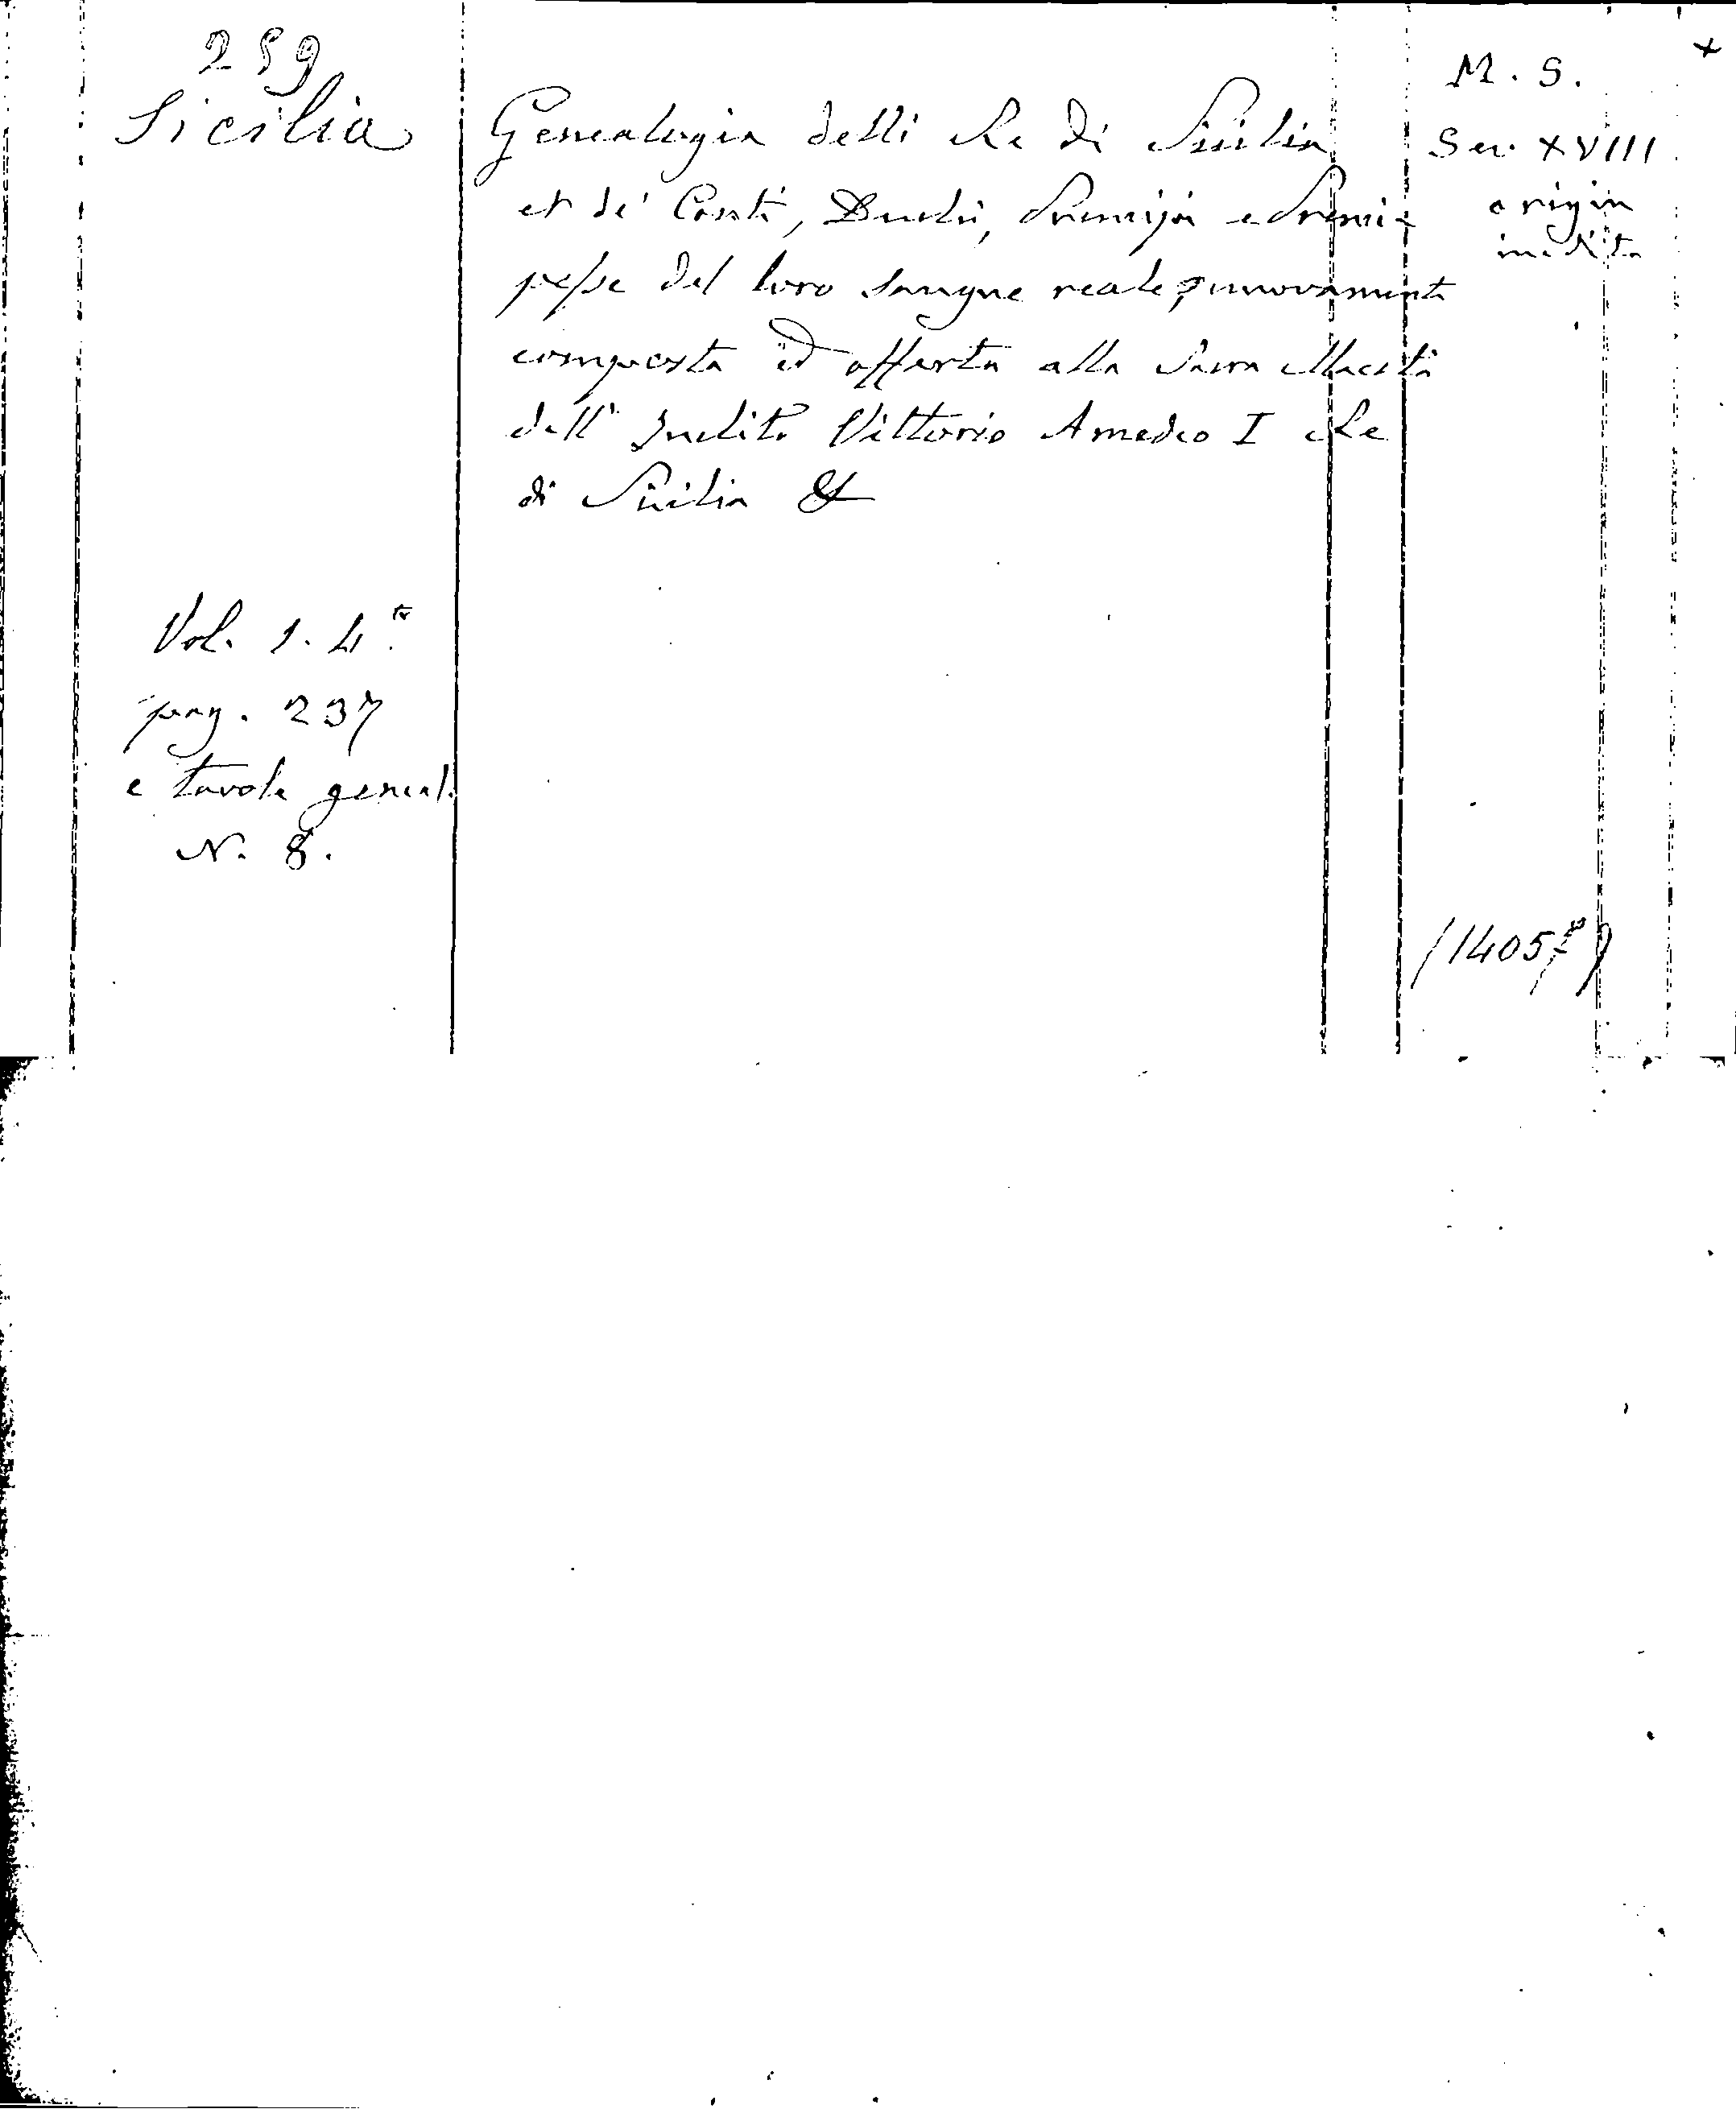 259
Sicilia
Genealogia delli Re di Sicilia
et de' Conti, Duchi, Principi e Princi-
pesse del loro sangue reale, nuovamente
composta ed offerta alla Sacra Maestà
dell' Inclito Vittorio Amedeo I Re
di Sicilia &
Vol. 1. 4.to
pag. 237
e tavole geneal.
N. 8.
M. S.
Sec. XVIII
origin
inedito
(1405